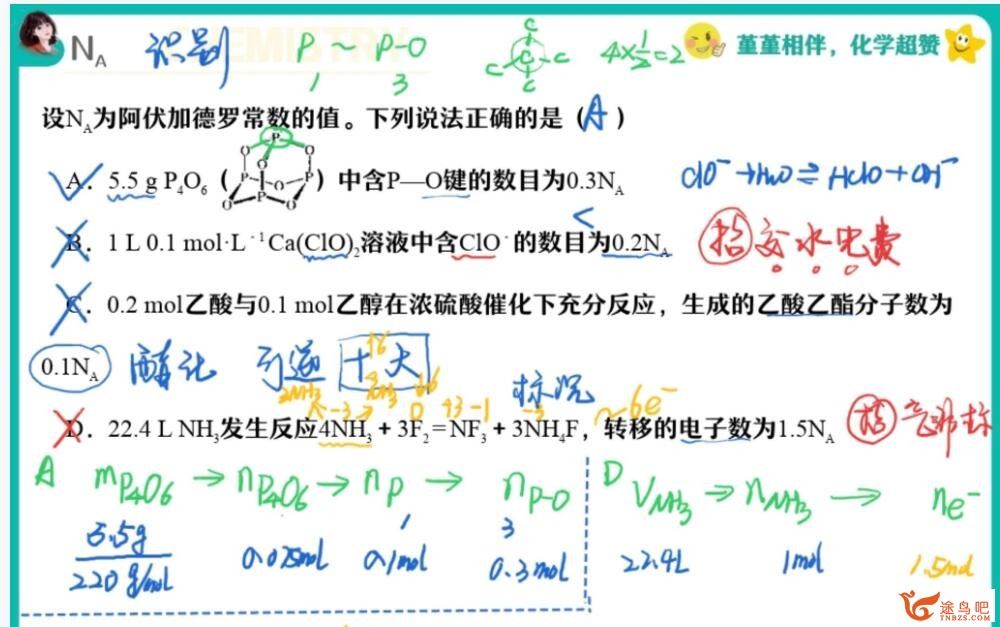 NA 识别 P ~ P-O 4×1/2=2 堇堇相伴，化学超赞
1 3
设NA为阿伏加德罗常数的值。下列说法正确的是（A）
A. 5.5 g P4O6（ ）中含P—O键的数目为0.3NA
ClO⁻+H2O⇌HClO+OH⁻
B. 1 L 0.1 mol·L⁻¹Ca(ClO)2溶液中含ClO⁻的数目为0.2NA
<
招 交水电费
C. 0.2 mol乙酸与0.1 mol乙醇在浓硫酸催化下充分反应，生成的乙酸乙酯分子数为
0.1NA 酯化 可逆 十大 标况 ~6e⁻
D. 22.4 L NH3发生反应4NH3+3F2=NF3+3NH4F，转移的电子数为1.5NA
A mP4O6 → nP4O6 → nP → nP-O
1 3
5.5g
220g/mol 0.025mol 0.1mol 0.3mol
D VNH3 → nNH3 → ne⁻
22.4L 1mol 1.5mol
途鸟吧
TNBZS.COM